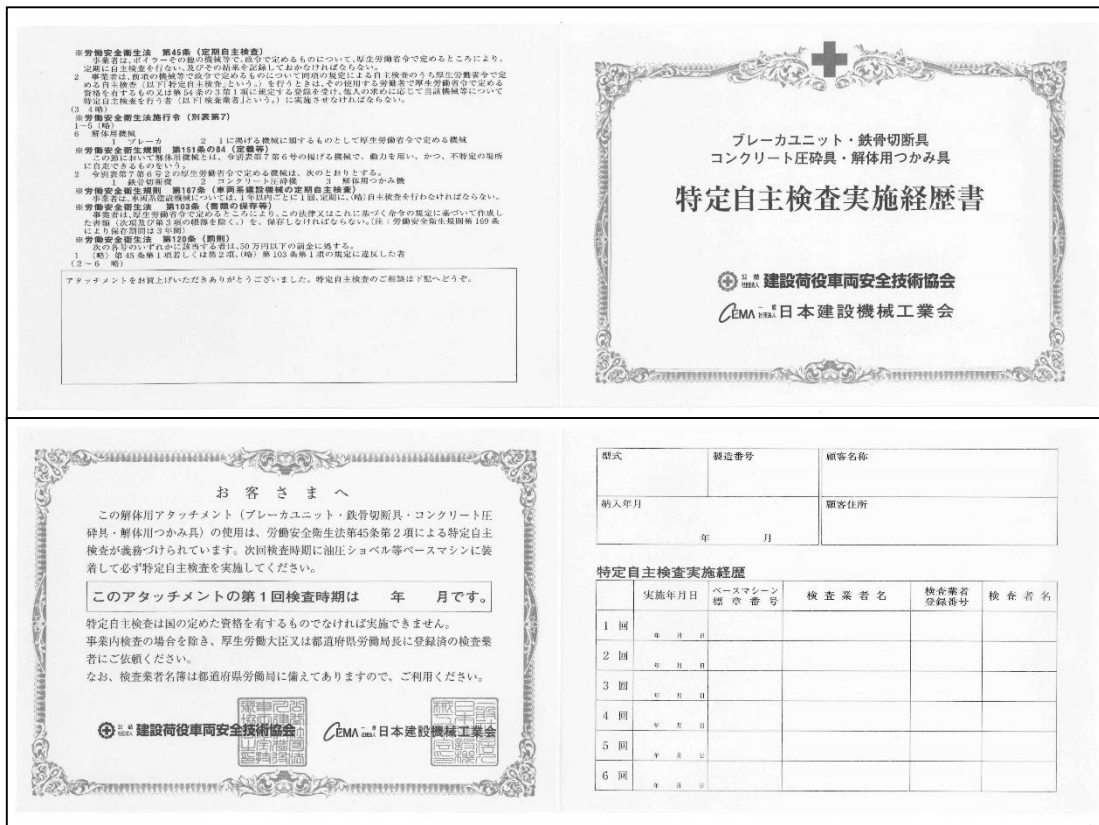 ※労働安全衛生法 第45条(定期自主検査)
事業者は、ボイラーその他の機械等で、政令で定めるものについて、厚生労働省令で定めるところにより、
定期に自主検査を行ない、及びその結果を記録しておかなければならない。
2 事業者は、前項の機械等で政令で定めるものについて同項の規定による自主検査のうち厚生労働省令で定
める自主検査(以下「特定自主検査」という。)を行うときは、その使用する労働者で厚生労働省令で定める
資格を有するもの又は第54条の3第1項に規定する登録を受け、他人の求めに応じて当該機械等について
特定自主検査を行う者(以下「検査業者」という。)に実施させなければならない。
(3 4略)
※労働安全衛生法施行令(別表第7)
1~5(略)
6 解体用機械
1 ブレーカ 2 1に掲げる機械に類するものとして厚生労働省令で定める機械
※労働安全衛生規則 第151条の84(定義等)
この節において解体用機械とは、令別表第7第6号の掲げる機械で、動力を用い、かつ、不特定の場所
に自走できるものをいう。
2 令別表第7第6号2の厚生労働省令で定める機械は、次のとおりとする。
1 鉄骨切断機 2 コンクリート圧砕機 3 解体用つかみ機
※労働安全衛生規則 第167条(車両系建設機械の定期自主検査)
事業者は、車両系建設機械については、1年以内ごとに1回、定期に、(略)自主検査を行わなければならない。
※労働安全衛生法 第103条(書類の保存等)
事業者は、厚生労働省令で定めるところにより、この法律又はこれに基づく命令の規定に基づいて作成し
た書類(次項及び第3項の帳簿を除く。)を、保存しなければならない。(注:労働安全衛生規則第169条
により保存期間は3年間)
※労働安全衛生法 第120条(罰則)
次の各号のいずれかに該当する者は、50万円以下の罰金に処する。
1 (略)第45条第1項若しくは第2項、(略)第103条第1項の規定に違反した者
(2~6 略)
アタッチメントをお買上げいただきありがとうございました。特定自主検査のご相談は下記へどうぞ。
ブレーカユニット・鉄骨切断具
コンクリート圧砕具・解体用つかみ具
特定自主検査実施経歴書
公益社団法人 建設荷役車両安全技術協会
CEMA 一般社団法人 日本建設機械工業会
お客さまへ
この解体用アタッチメント(ブレーカユニット・鉄骨切断具・コンクリート圧
砕具・解体用つかみ具)の使用は、労働安全衛生法第45条第2項による特定自主
検査が義務づけられています。次回検査時期に油圧ショベル等ベースマシンに装
着して必ず特定自主検査を実施してください。
このアタッチメントの第1回検査時期は 年 月です。
特定自主検査は国の定めた資格を有するものでなければ実施できません。
事業内検査の場合を除き、厚生労働大臣又は都道府県労働局長に登録済の検査業
者にご依頼ください。
なお、検査業者名簿は都道府県労働局に備えてありますので、ご利用ください。
公益社団法人 建設荷役車両安全技術協会 CEMA 一般社団法人 日本建設機械工業会
型式 製造番号 顧客名称
納入年月 顧客住所
年 月
特定自主検査実施経歴
実施年月日 ベースマシーン標章番号 検査業者名 検査業者登録番号 検査者名
1回 年 月 日
2回 年 月 日
3回 年 月 日
4回 年 月 日
5回 年 月 日
6回 年 月 日